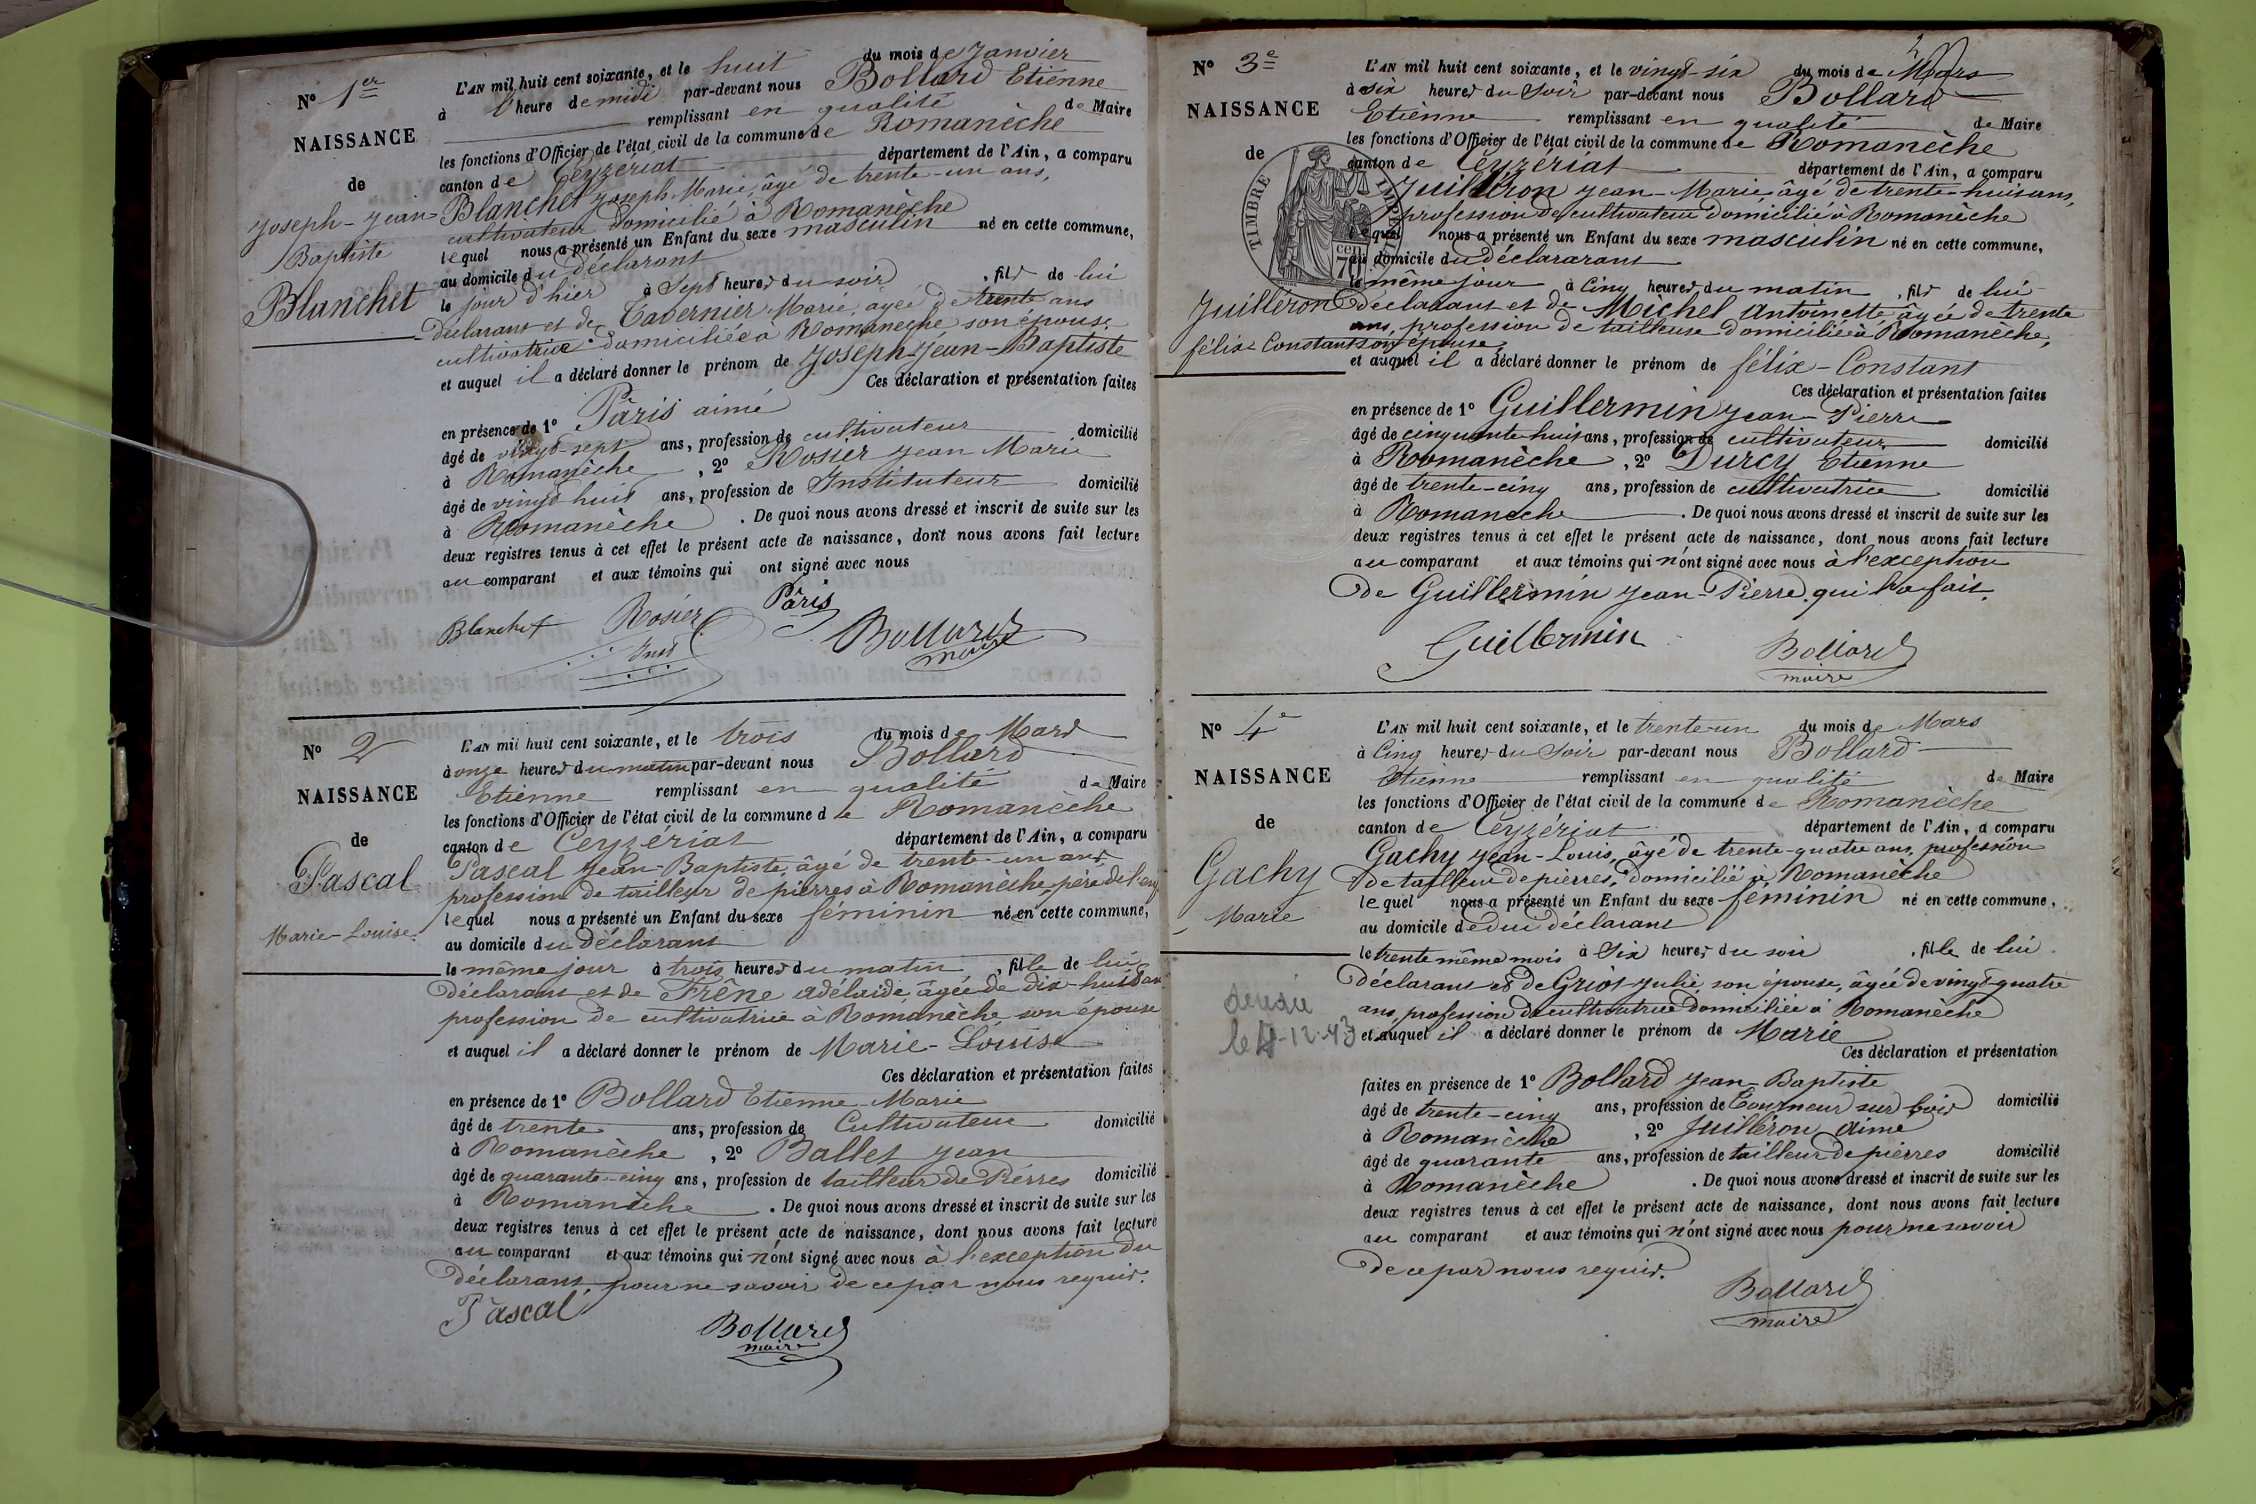 N° 1er
NAISSANCE
de
Joseph-Jean-
Baptiste
Blanchet
L'AN mil huit cent soixante, et le huit du mois de Janvier
à l'heure de midi par-devant nous Bollard Etienne
remplissant en qualité de Maire
les fonctions d'Officier de l'état civil de la commune de Romanèche
canton de Ceyzériat département de l'Ain, a comparu
Blanchet Joseph-Marie, âgé de trente-un ans,
cultivateur domicilié à Romanèche
lequel nous a présenté un Enfant du sexe masculin né en cette commune,
au domicile du déclarant
le jour d'hier à Sept heures du soir, fils de lui
Déclarant et de Tavernier Marie, agée de trente ans
cultivatrice domiciliée à Romanèche son épouse
et auquel il a déclaré donner le prénom de Joseph-Jean-Baptiste
Ces déclaration et présentation faites
en présence de 1° Pâris aimé
âgé de vingt-sept ans, profession de cultivateur domicilié
à Romanèche, 2° Rosier Jean Marie
âgé de vingt huit ans, profession de Instituteur domicilié
à Romanèche. De quoi nous avons dressé et inscrit de suite sur les
deux registres tenus à cet effet le présent acte de naissance, dont nous avons fait lecture
au comparant et aux témoins qui ont signé avec nous
Blanchet Rosier Pâris Bollard
Inst maire
N° 2
NAISSANCE
de
Pascal
Marie-Louise.
L'AN mil huit cent soixante, et le trois du mois de Mars
à onze heures du matin par-devant nous Bollard
Etienne remplissant en qualité de Maire
les fonctions d'Officier de l'état civil de la commune de Romanèche
canton de Ceyzériat département de l'Ain, a comparu
Pascal Jean-Baptiste, âgé de trente-un ans,
profession de tailleur de pierres à Romanèche, père de l'enf
lequel nous a présenté un Enfant du sexe féminin né en cette commune,
au domicile du déclarant
le même jour à trois heures du matin, fille de lui
Déclarant et de Frêne adélaide, âgée de dix-huit ans
profession de cultivatrice à Romanèche son épouse
et auquel il a déclaré donner le prénom de Marie-Louise
Ces déclaration et présentation faites
en présence de 1° Bollard Etienne-Marie
âgé de trente ans, profession de Cultivateur domicilié
à Romanèche, 2° Ballet Jean
âgé de quarante-cinq ans, profession de tailleur de Pierres domicilié
à Romanèche. De quoi nous avons dressé et inscrit de suite sur les
deux registres tenus à cet effet le présent acte de naissance, dont nous avons fait lecture
au comparant et aux témoins qui n'ont signé avec nous à l'exception du
Déclarant, pour ne savoir de ce par nous requis.
Pascal Bollard
maire
N° 3e
NAISSANCE
de
TIMBRE IMPERIAL
cen
70
Juilléron
félix-Constant
L'AN mil huit cent soixante, et le vingt-six du mois de Mars
à six heures du Soir par-devant nous Bollard
Etienne remplissant en qualité de Maire
les fonctions d'Officier de l'état civil de la commune de Romanèche
canton de Ceyzériat département de l'Ain, a comparu
Juilléron Jean-Marie, âgé de trente-huit ans,
profession de cultivateur domicilié à Romanèche
lequel nous a présenté un Enfant du sexe masculin né en cette commune,
au domicile du déclararant
le même jour à cinq heures du matin, fils de lui
déclarant et de Michel Antoinette âgée de trente
ans, profession de tailleuse domiciliée à Romanèche,
son épouse,
et auquel il a déclaré donner le prénom de félix-Constant
Ces déclaration et présentation faites
en présence de 1° Guillermin Jean-Pierre
âgé de cinquante-huit ans, profession de cultivateur domicilié
à Romanèche, 2° Durcy Etienne
âgé de trente-cinq ans, profession de cultivatrice domicilié
à Romaneche. De quoi nous avons dressé et inscrit de suite sur les
deux registres tenus à cet effet le présent acte de naissance, dont nous avons fait lecture
au comparant et aux témoins qui n'ont signé avec nous à l'exception
de Guillermin Jean-Pierre, qui l'a fait.
Guillermin Bollard
maire
N° 4e
NAISSANCE
de
Gachy
Marie
le 4-12-43
L'AN mil huit cent soixante, et le trente-un du mois de Mars
à Cinq heures du Soir par-devant nous Bollard
Etienne remplissant en qualité de Maire
les fonctions d'Officier de l'état civil de la commune de Romanèche
canton de Ceyzériat département de l'Ain, a comparu
Gachy Jean-Louis, âgé de trente-quatre ans, profession
de tailleur de pierres, domicilié à Romanèche
lequel nous a présenté un Enfant du sexe féminin né en cette commune,
au domicile de du déclarant
le trente même mois à Six heures du soir, fille de lui
Déclarant et de Griot Julie, son épouse, âgée de vingt-quatre
ans, profession de cultivatrice domiciliée à Romanèche
et auquel il a déclaré donner le prénom de Marie
Ces déclaration et présentation
faites en présence de 1° Bollard Jean-Baptiste
âgé de trente-cinq ans, profession de Tourneur sur bois domicilié
à Romanèche, 2° Juilléron Aimé
âgé de quarante ans, profession de tailleur de pierres domicilié
à Romanèche. De quoi nous avons dressé et inscrit de suite sur les
deux registres tenus à cet effet le présent acte de naissance, dont nous avons fait lecture
au comparant et aux témoins qui n'ont signé avec nous pour ne savoir
de ce par nous requis.
Bollard
maire